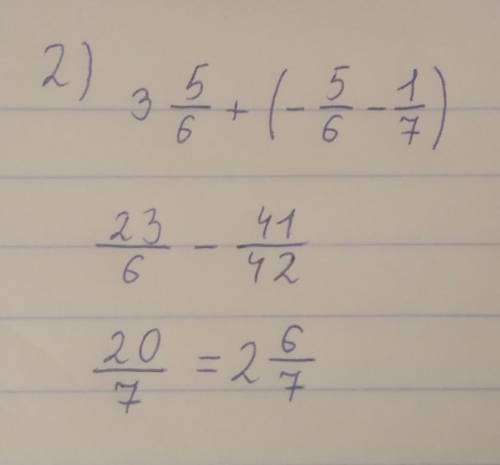 2) 3 5/6 + (- 5/6 - 1/7)
23/6 - 41/42
20/7 = 2 6/7